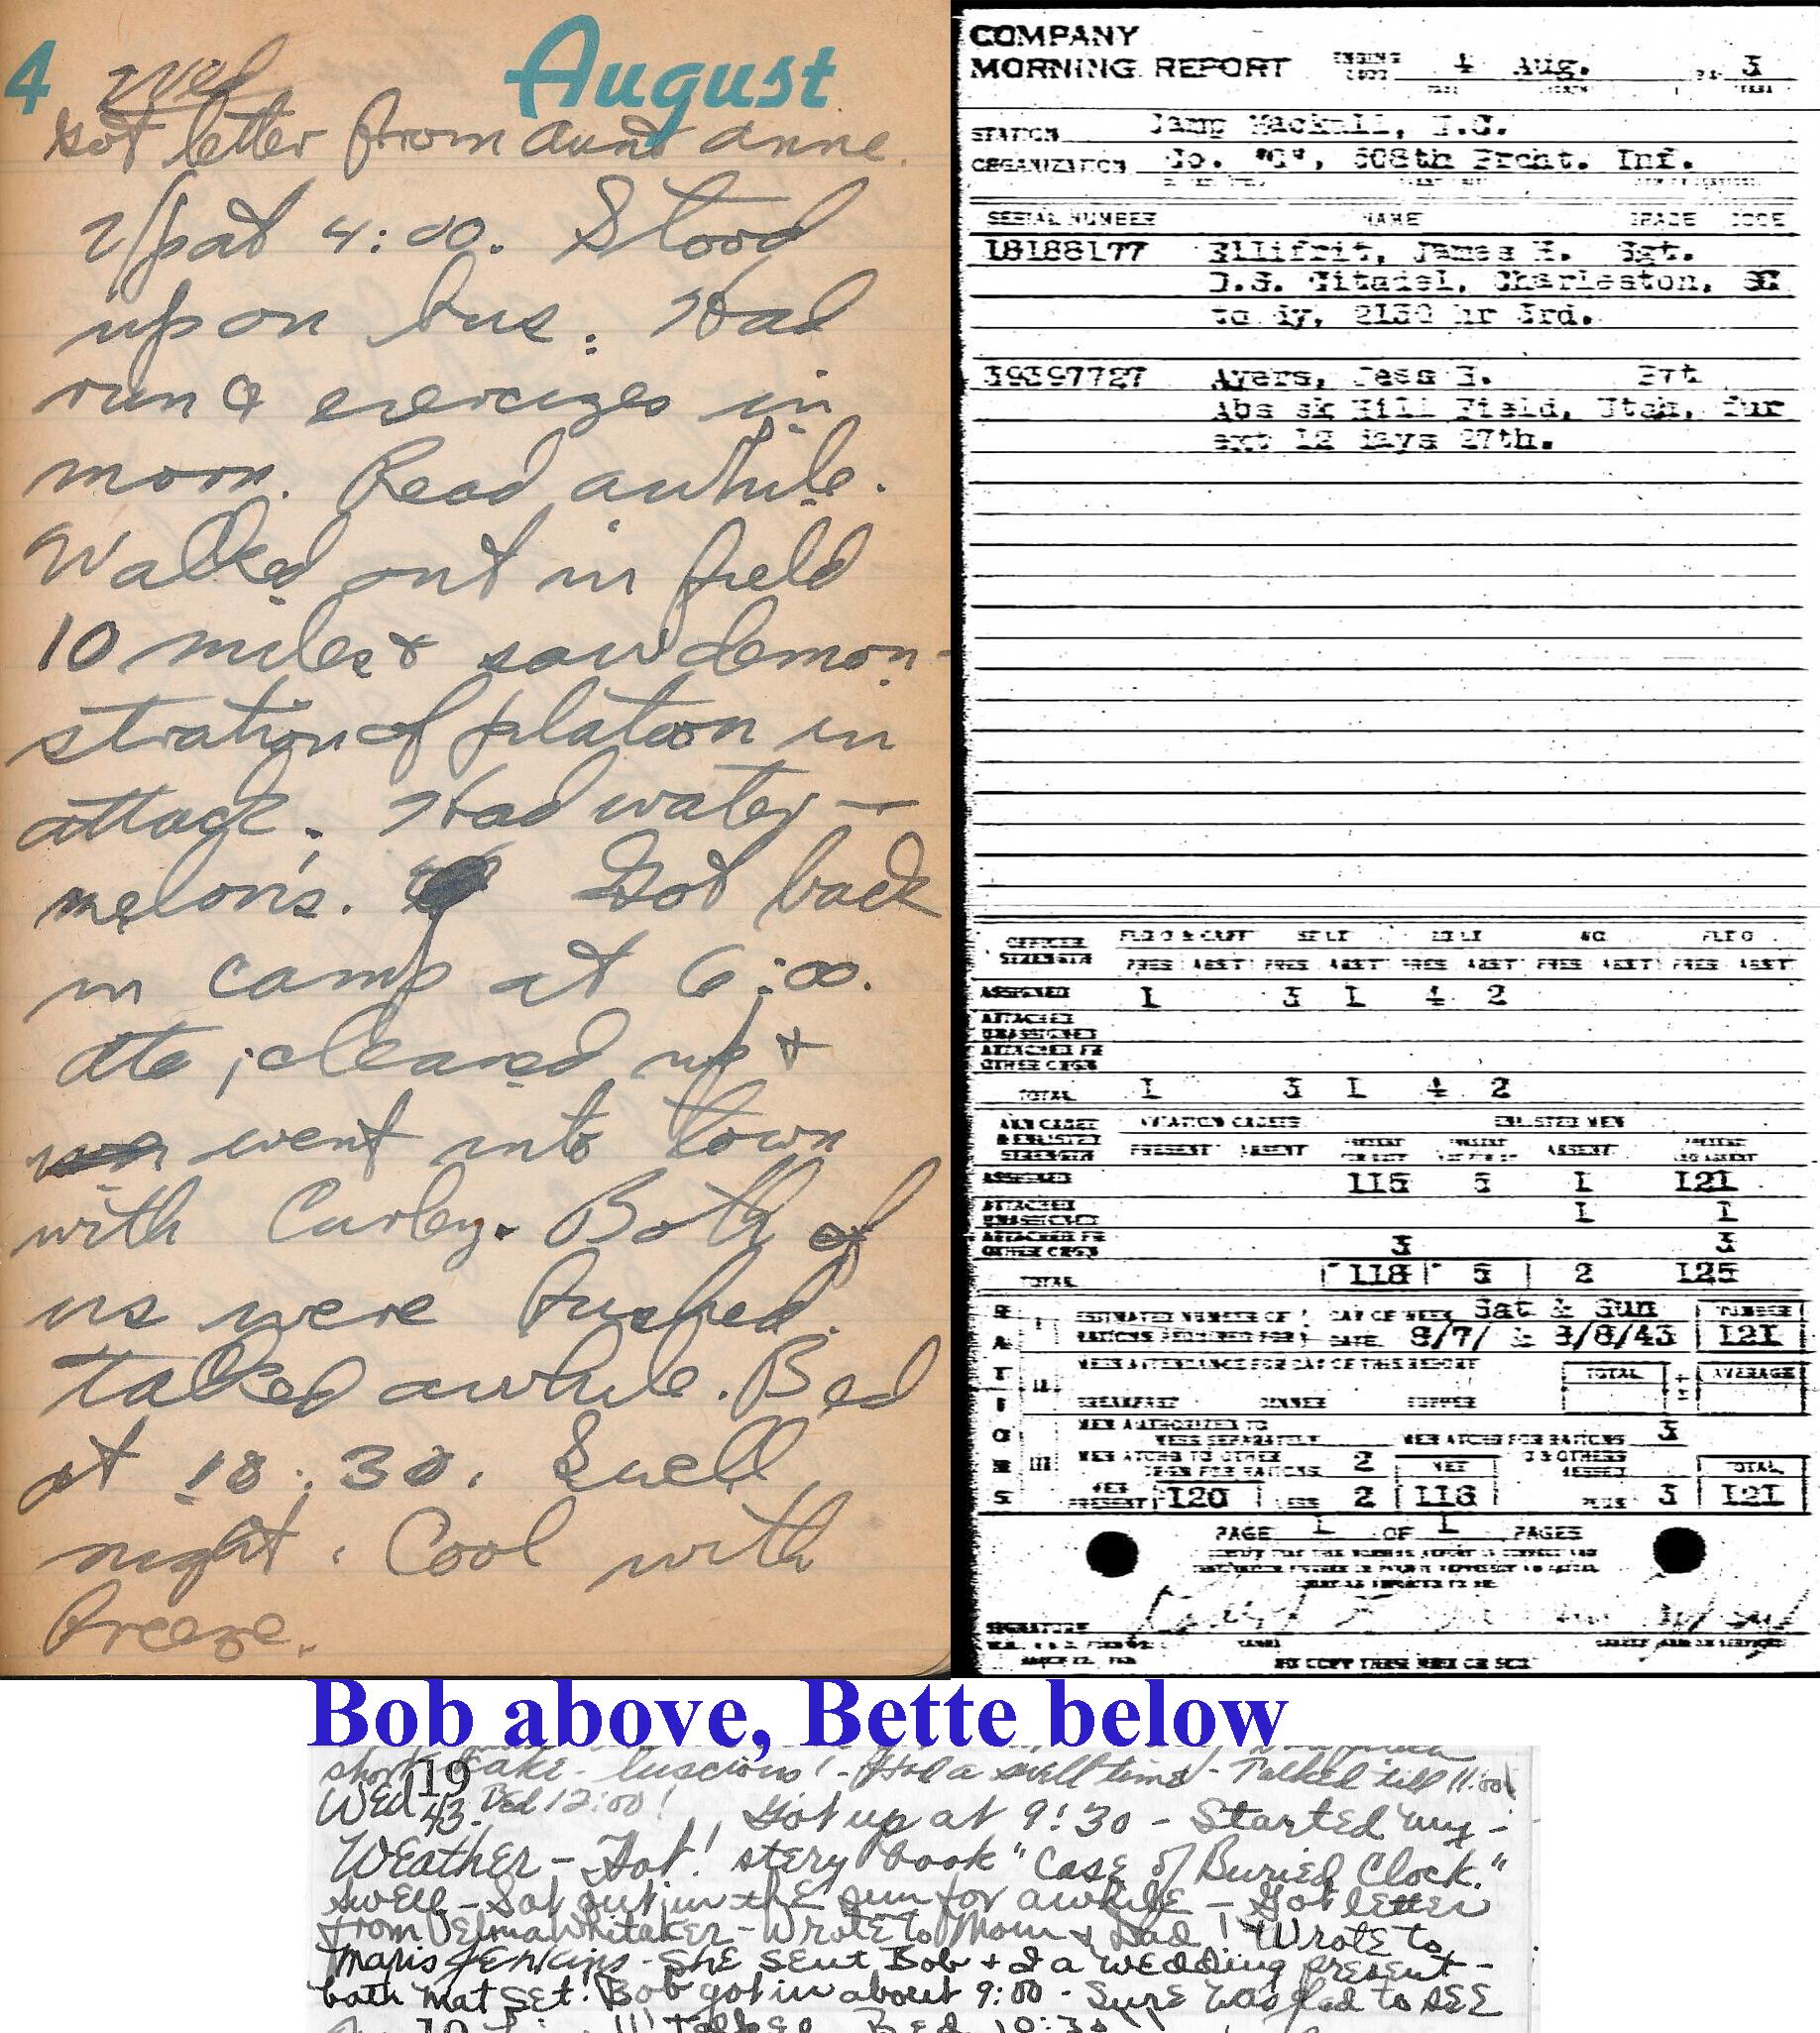 4 Wed August
Got letter from Aunt Anne.
Up at 4:00. Stood
up on bus. Had
run & exercizes in
morn. Read awhile.
Walked out in field
10 miles & saw demon-
stration of platoon in
attack. Had water-
melons. Got back
in camp at 6:00.
Ate, cleaned up &
went into town
with Curley. Both of
us were bushed.
Talked awhile. Bed
at 10:30. Swell
night. Cool with
breeze.
COMPANY
MORNING REPORT ENDING 4 Aug. 3
STATION Camp Mackall, N.C.
ORGANIZATION Co. "G", 508th Prcht. Inf.
SERIAL NUMBER NAME GRADE CODE
18188177 Ellifrit, James H. Sgt.
D.S. Citadel, Charleston, SC
to dy, 2130 hr 3rd.
39397727 Ayers, Jess E. Pvt
Abs sk Hill Field, Utah, fur
ext 12 days 27th.
OFFICER STRENGTH FLD O & CAPT 1ST LT 2D LT WO FLT O
PRES ABST PRES ABST PRES ABST PRES ABST PRES ABST
ASSIGNED 1 3 1 4 2
ATTACHED UNASSIGNED
ATTACHED FR OTHER ORGN
TOTAL 1 3 1 4 2
AVN CADET & ENLISTED STRENGTH AVIATION CADETS ENLISTED MEN
PRESENT ABSENT PRESENT FOR DUTY PRESENT NOT FOR DY ABSENT PRESENT AND ABSENT
ASSIGNED 115 5 1 121
ATTACHED UNASSIGNED 1 1
ATTACHED FR OTHER ORGN 3 3
TOTAL 118 5 2 125
RATIONS
I ESTIMATED NUMBER OF RATIONS REQUIRED FOR DAY OF WEEK Sat & Sun NUMBER
DATE 8/7/ & 8/8/43 121
II MESS ATTENDANCE FOR DAY OF THIS REPORT TOTAL AVERAGE
BREAKFAST DINNER SUPPER
III MEN AUTHORIZED TO MESS SEPARATELY MEN ATCHD FOR RATIONS 3
MEN ATCHD TO OTHER ORGN FOR RATIONS 2 NET TOTAL
MEN PRESENT 120 LESS 2 118 PLUS 3 121
PAGE 1 OF 1 PAGES
SIGNATURE
Bob above, Bette below
short cake - luscious! - Had a swell time - Talked till 11:00
Wed 19
43. Bed 12:00! Got up at 9:30 - Started my-
Weather - Hot! stery book "Case of Buried Clock."
Swell - Sat out in the sun for awhile - Got letter
from Velma Whitaker - Wrote to Mom & Dad! Wrote to
Maris Jenkins - She sent Bob & I a wedding present -
bath mat set. Bob got in about 9:00 - Sure was glad to see
Talked Bed 10:30